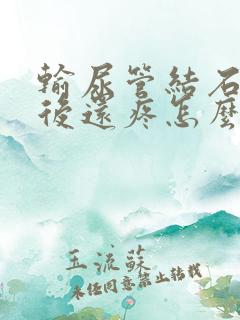 輸尿管結石
後還疼怎麼
玉流蘇
未经同意禁止转载